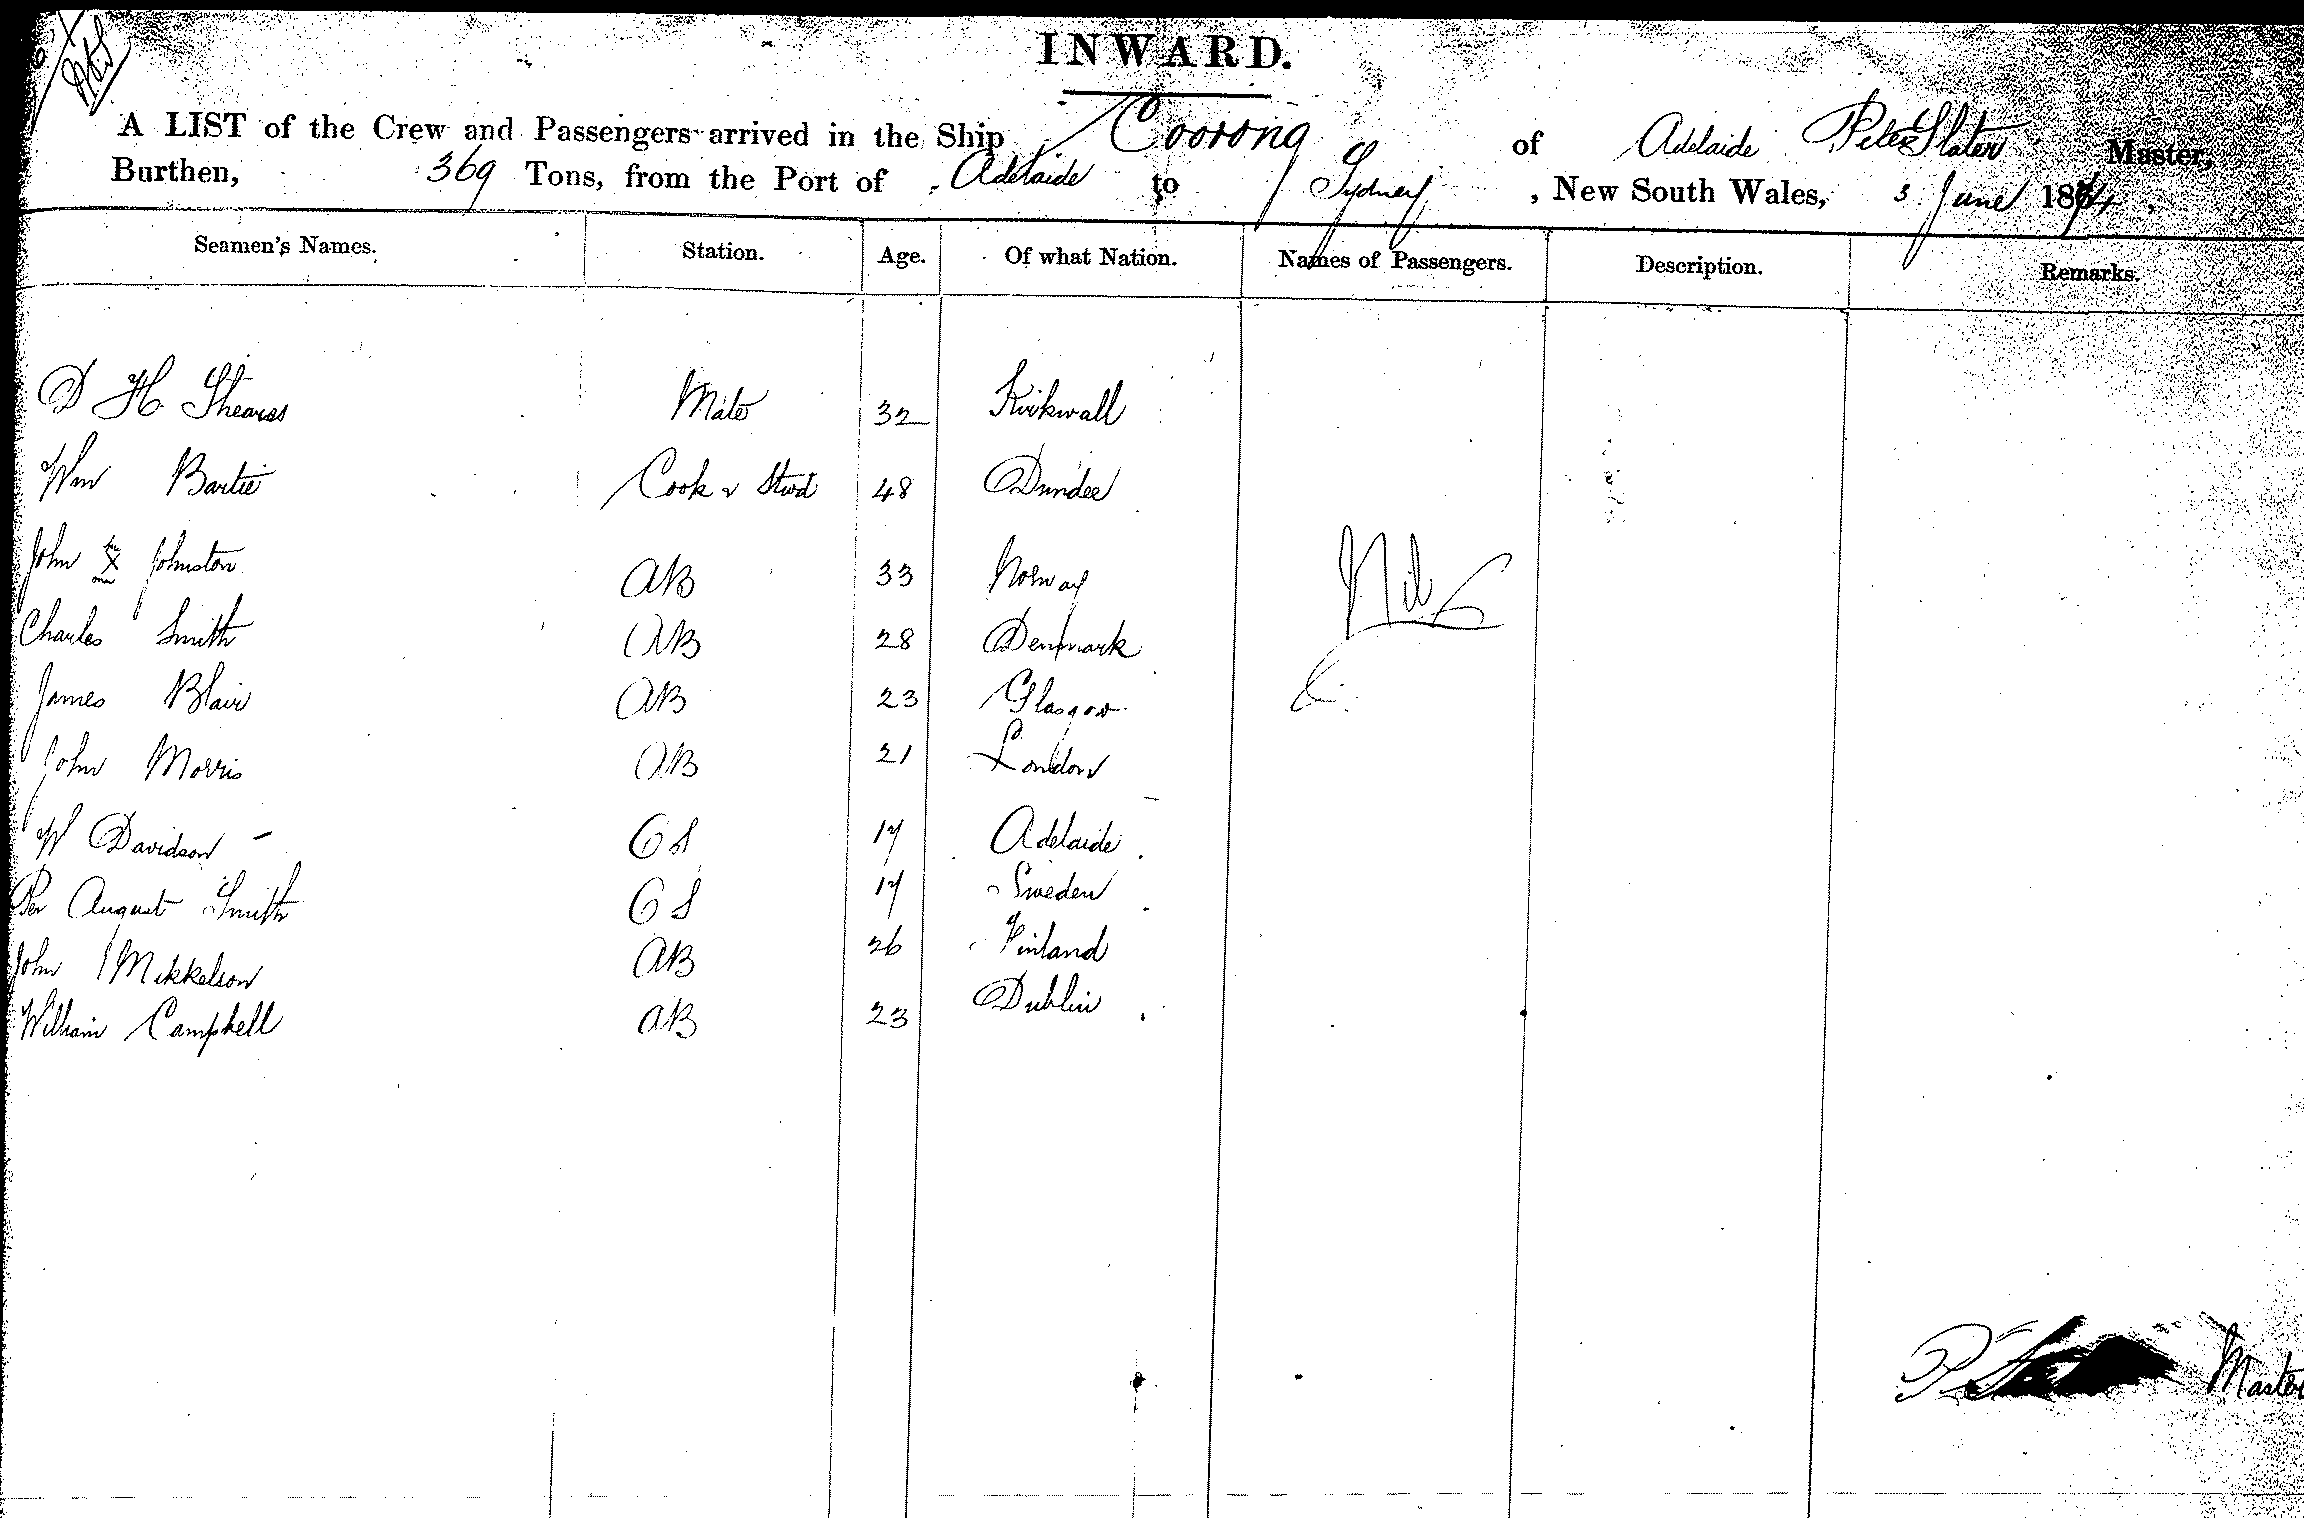 INWARD.
A LIST of the Crew and Passengers arrived in the Ship Coorong of Adelaide Peter Slater Master,
Burthen, 369 Tons, from the Port of Adelaide to Sydney, New South Wales, 3 June 1874
Seamen's Names. Station. Age. Of what Nation. Names of Passengers. Description. Remarks.
D H Sheares Mate 32 Kirkwall
Wm Bartie Cook & Stwd 48 Dundee
John X Johnston AB 33 Norway
Nil
Charles Smith AB 28 Denmark
James Blair AB 23 Glasgow
John Morris AB 21 London
W Davidson OS 17 Adelaide
Per August Smith OS 17 Sweden
John Mikkelson AB 26 Finland
William Campbell AB 23 Dublin
Master